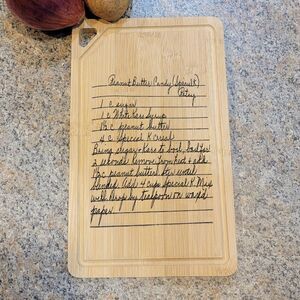 Peanut Butter Candy (Special K)
Patsy
1 C sugar
1 C White Karo syrup
1½ C peanut butter
4 C Special K Cereal
Bring sugar + Karo to boil, boil for
2 seconds remove from heat + add
1½ C peanut butter. Stir until
blended. Add 4 cups Special K. Mix
well. Drop by teaspoon on waxed
paper.